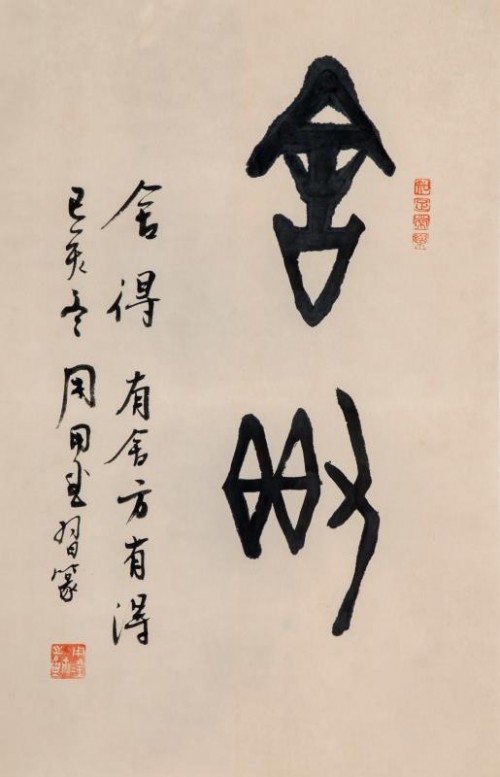 舍得
舍得 有舍方有得
己亥冬 周用金習篆